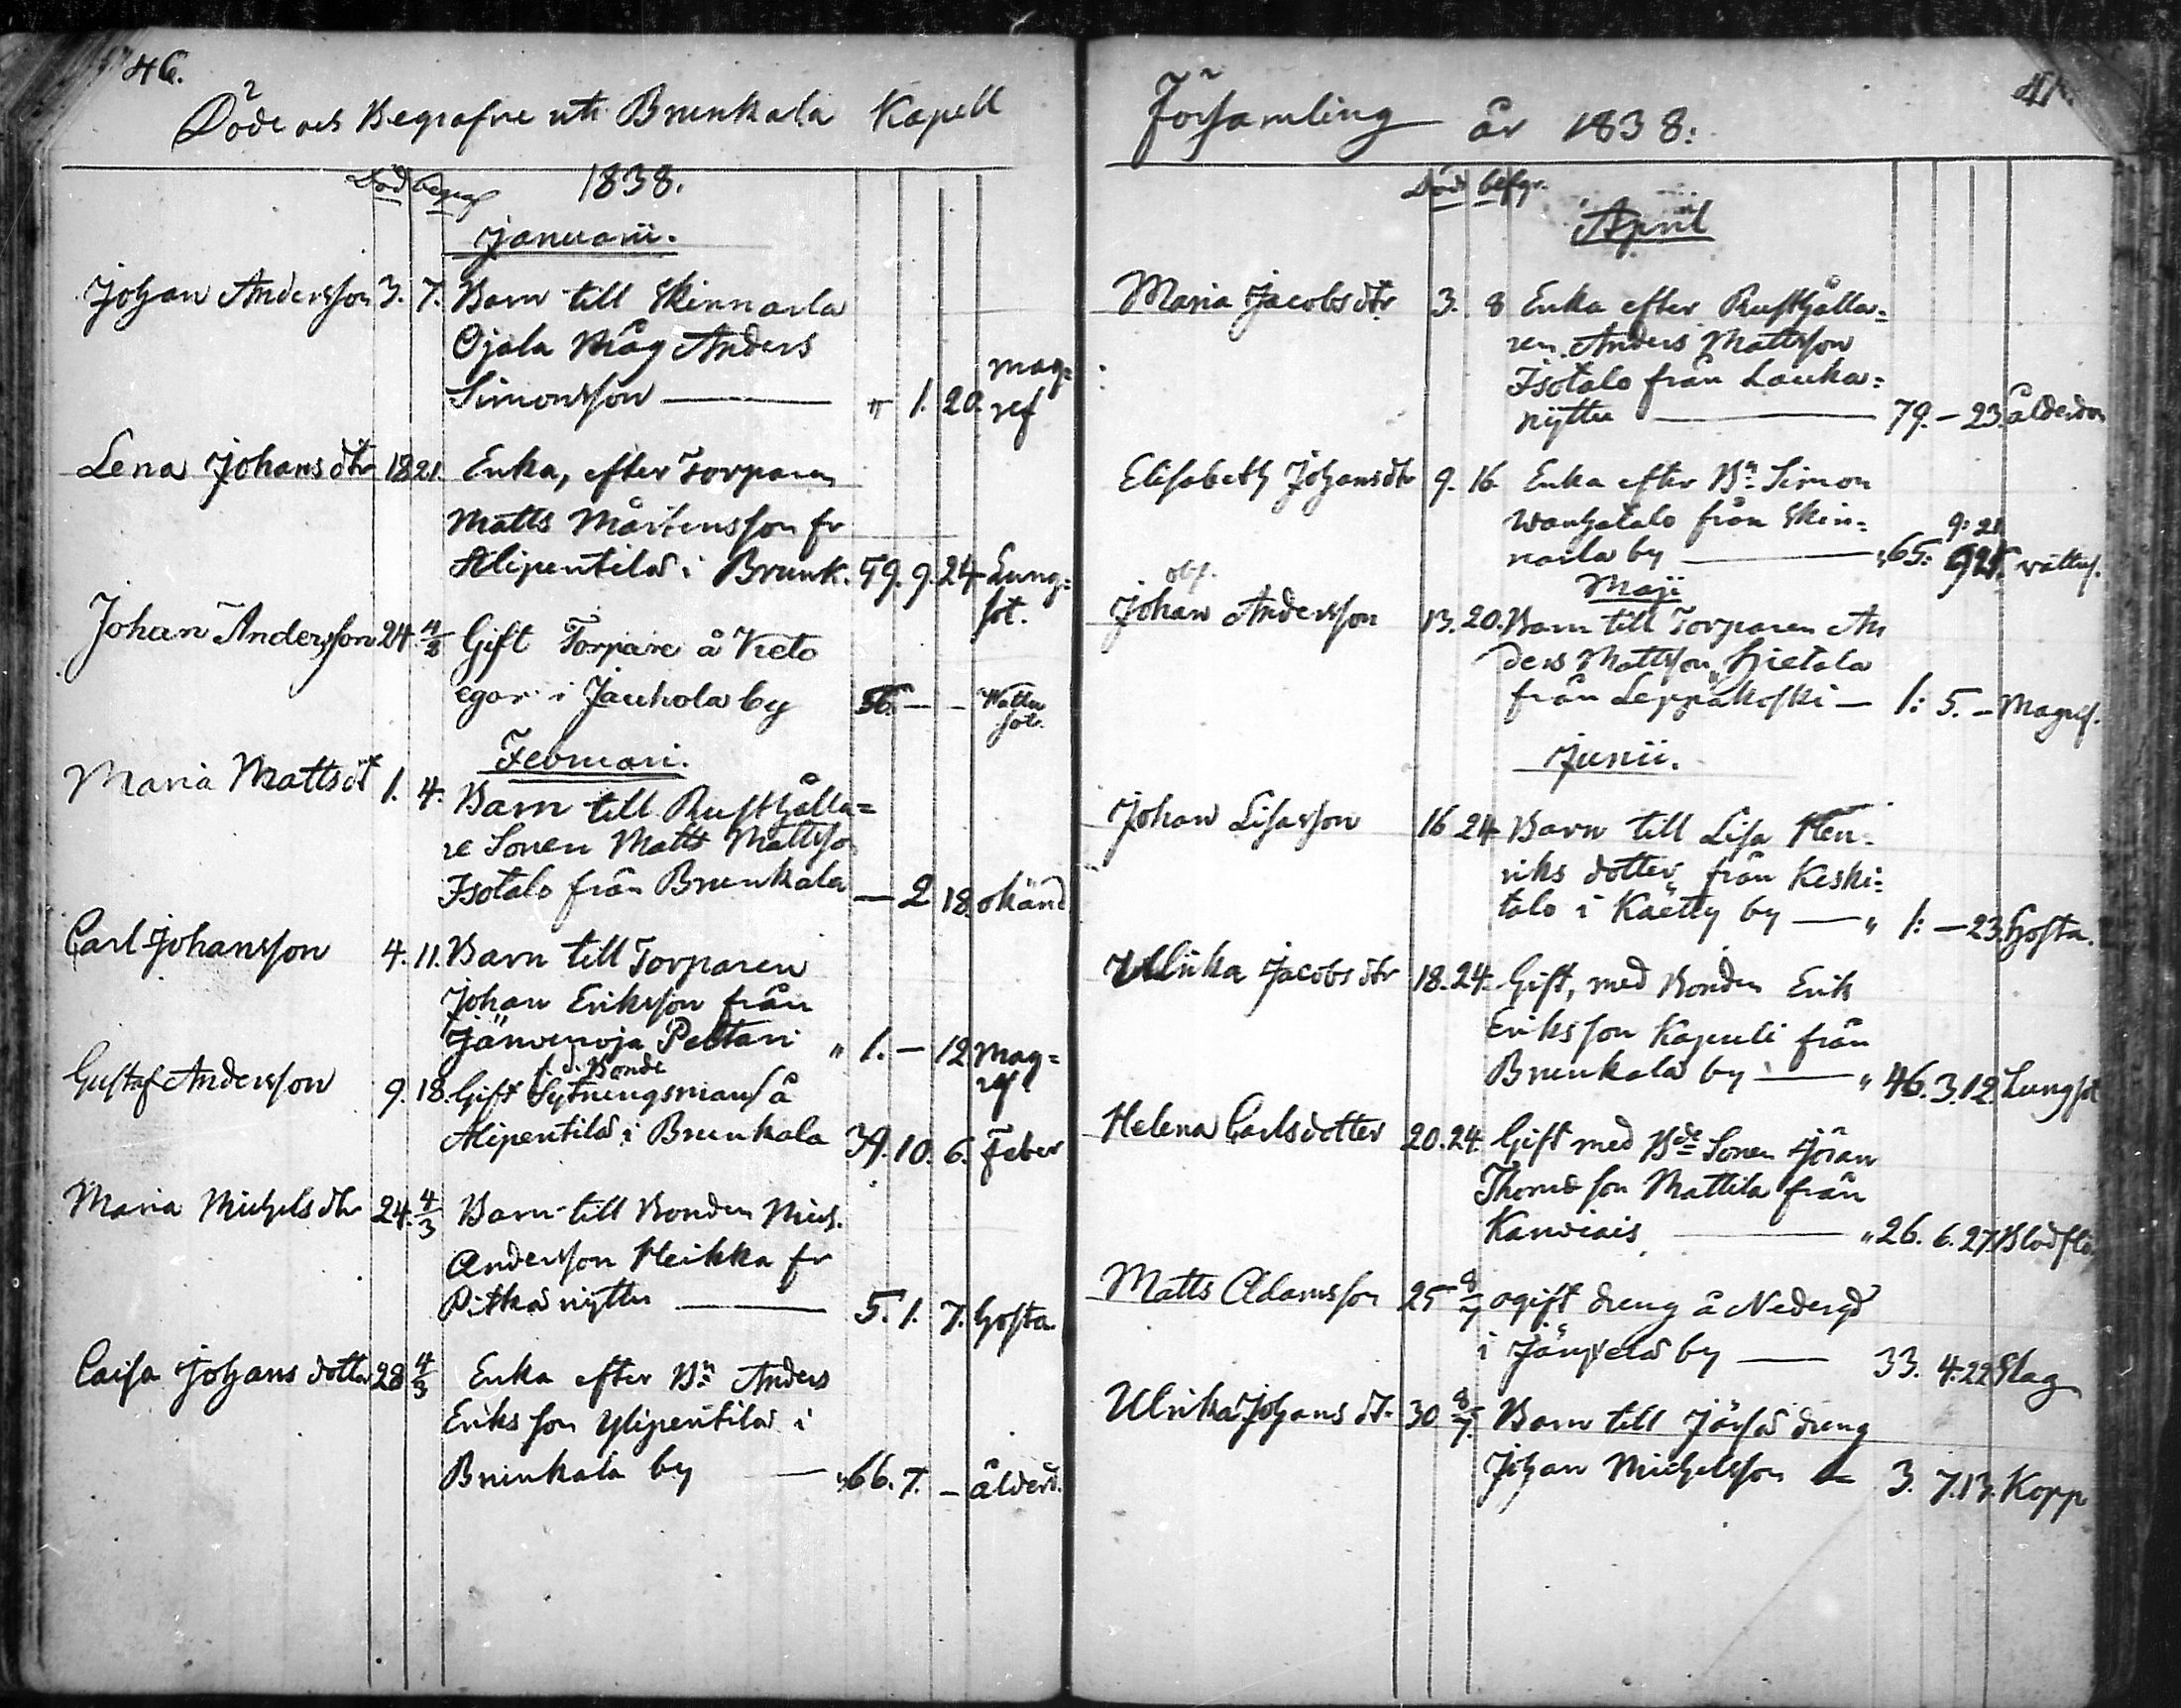 46.
Döde och Begrafne uti Brunkala Kapell
Död begrf
1838.
Januarii.
Johan Andersson 3. 7. Barn till Skinnarla
Ojala Måg Anders
Simonsson — " 1. 20. mag=
ref
Lena Johans dtr 18 21. Enka, efter Torparen
Matts Mårtensson fr
Alipentilä i Brunk. 59. 9. 24 Lung=
sot.
Johan Andersson 24. 4/2 Gift Torpare å Keto
egor i Jauhola by 56. — — Watten
sot.
Februari.
Maria Matts dt 1. 4. Barn till Rusthålla=
re Sonen Matts Mattsson
Isotalo från Brunkala — 2 18. okänd
Carl Johansson 4. 11. Barn till Torparen
Johan Eriksson från
Järvenoja Peltari " 1. — 12 mag=
ref.
f. d. Bonde
Gustaf Andersson 9. 18. Gift Sytningsman å
Alipentilä i Brunkala 39. 10. 6. Feber
Maria Michels dtr 24. 4/3 Barn till Bonden Mich.
Andersson Heikka fr
Pitkäniyttu — 5. 1. 7. hosta
Caisa Johans dotter 28 4/3 Enka efter Bn Anders
Eriksson Ylipentilä i
Brunkala by — " 66. 7. — ålderd.
47.
Församling år 1838:
Död befgr.
April
Maria Jacobs dtr 3. 8 Enka efter Rusthålla=
ren Anders Mattsson
Isotalo från Lauka=
niyttu — 79. — 23. ålderdom
Elisabeth Johansdtr 9. 16. Enka efter Bn Simon
Wanhatalo från Skin=
9: 21
narla by — " 65: vattus.
Maji
Johan Andersson 13. 20. Barn till Torparen An
ders Mattsson Hietala
från Leppäkoski — 1: 5. — Magref.
Junii.
Johan Lisasson 16 24 Barn till Lisa Hen=
riks dotter från Keski=
talo i Kaetty by — " 1: — 23. hosta.
Ullrika Jacobs dtr 18. 24. Gift, med Bonden Erik
Eriksson Kapuli från
Brunkala by — " 46. 3. 12. Lungsot
Helena Carlsdotter 20. 24. Gift med Bde Sonen Jöran
Thomasson Mattila från
Karviais — " 26. 6. 27. Blodflö
Matts Adamsson 25 8/7 ogift dreng å Nedergd
i by — 33. 4. 22 Slag
Ulrika Johans dt. 30 8/7. Barn till dreng
Johan Michelsson — 3. 7. 13. Kopp